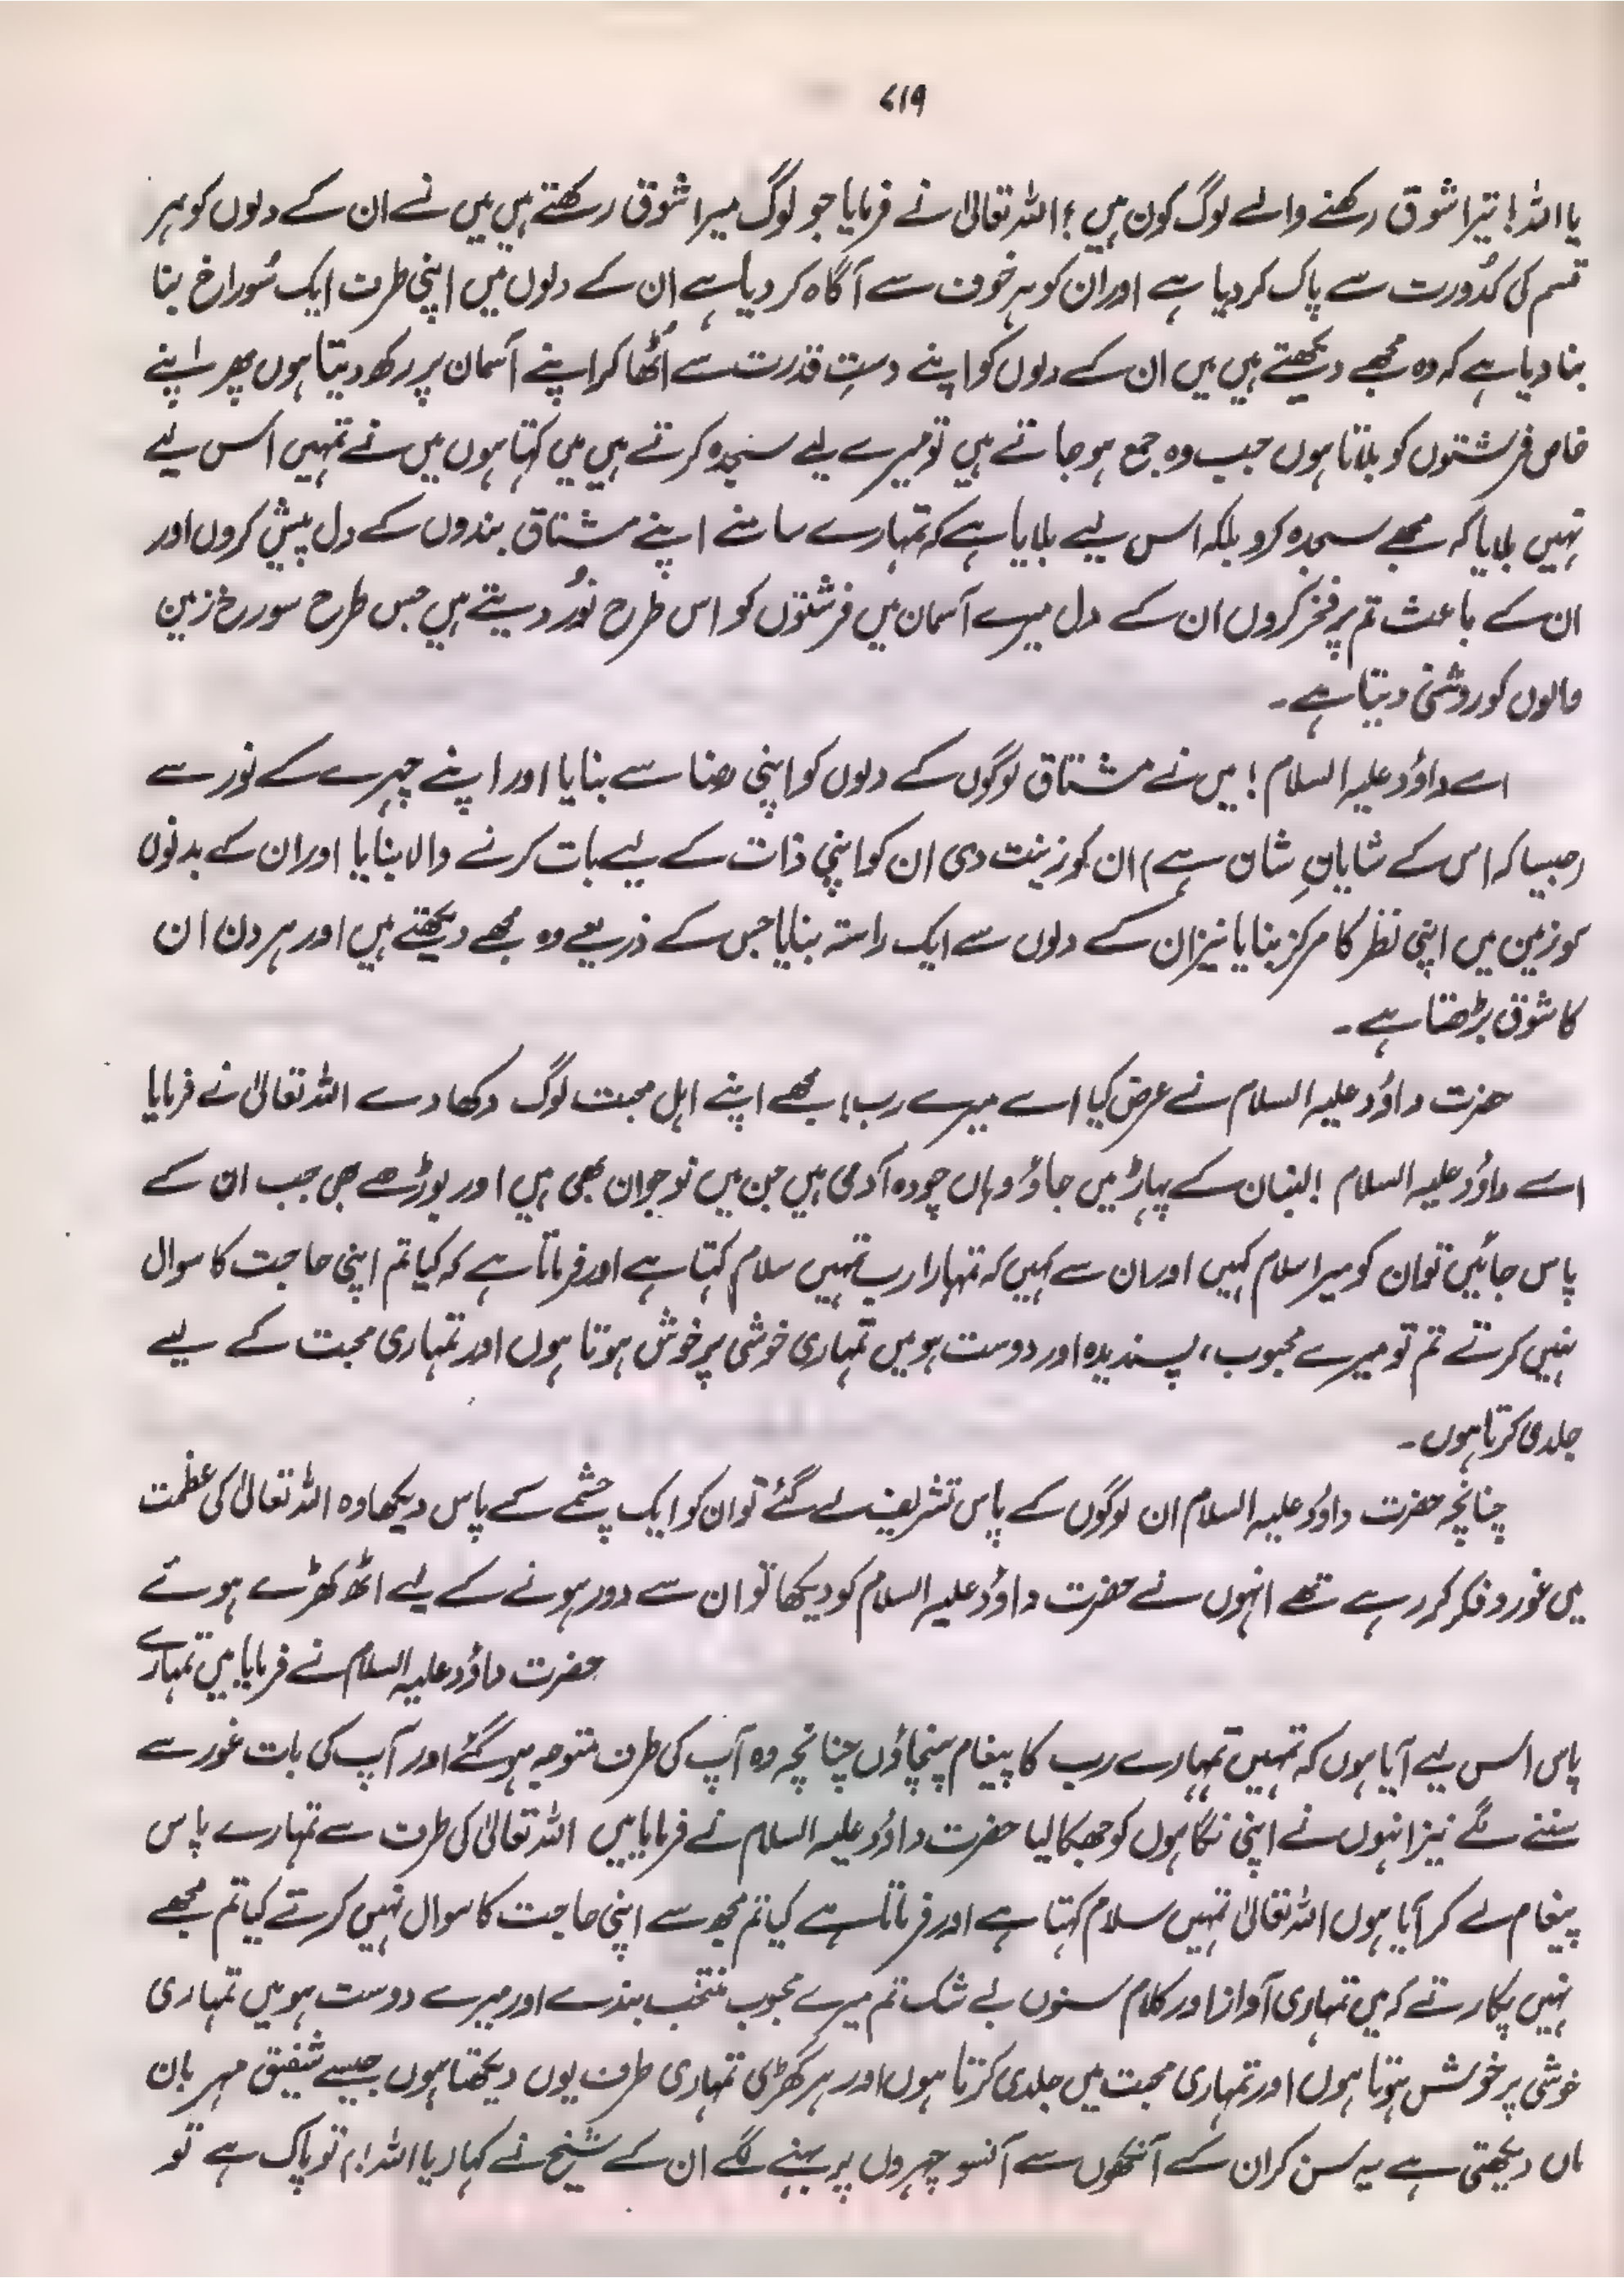 ۷۱۹
یا اللہ! تیرا شوق رکھنے والے لوگ کون ہیں؟ اللہ تعالیٰ نے فرمایا جو لوگ میرا شوق رکھتے ہیں میں نے ان کے دلوں کو ہر
قسم کی کدُورت سے پاک کر دیا ہے اور ان کو ہر خوف سے آگاہ کر دیا ہے ان کے دلوں میں اپنی طرف ایک سُوراخ بنا
بنا دیا ہے کہ وہ مجھے دیکھتے ہیں میں ان کے دلوں کو اپنے دستِ قدرت سے اُٹھا کر اپنے آسمان پر رکھ دیتا ہوں پھر اپنے
خاص فرشتوں کو بلاتا ہوں جب وہ جمع ہو جاتے ہیں تو میرے لیے سجدہ کرتے ہیں میں کہتا ہوں میں نے تمہیں اس لیے
نہیں بلایا کہ مجھے سجدہ کرو بلکہ اس لیے بلایا ہے کہ تمہارے سامنے اپنے مشتاق بندوں کے دل پیش کروں اور
ان کے باعث تم پر فخر کروں ان کے دل میرے آسمان میں فرشتوں کو اس طرح نُور دیتے ہیں جس طرح سورج زمین
والوں کو روشنی دیتا ہے۔
اے داؤد علیہ السلام! میں نے مشتاق لوگوں کے دلوں کو اپنی رضا سے بنایا اور اپنے چہرے کے نور سے
(جیسا کہ اس کے شایانِ شان ہے) ان کو زینت دی ان کو اپنی ذات کے لیے بات کرنے والا بنایا اور ان کے بدنوں
کو زمین میں اپنی نظر کا مرکز بنایا نیز ان کے دلوں سے ایک راستہ بنایا جس کے ذریعے وہ مجھے دیکھتے ہیں اور ہر دن ان
کا شوق بڑھتا ہے۔
حضرت داؤد علیہ السلام نے عرض کیا اے میرے رب! مجھے اپنے اہل محبت لوگ دکھا دے اللہ تعالیٰ نے فرمایا
اے داؤد علیہ السلام! لبنان کے پہاڑ میں جاؤ وہاں چودہ آدمی ہیں جن میں نوجوان بھی ہیں اور بوڑھے بھی جب ان کے
پاس جائیں تو ان کو میرا سلام کہیں اور ان سے کہیں کہ تمہارا رب تمہیں سلام کہتا ہے اور فرماتا ہے کہ کیا تم اپنی حاجت کا سوال
نہیں کرتے تم تو میرے محبوب، پسندیدہ اور دوست ہو میں تمہاری خوشی پر خوش ہوتا ہوں اور تمہاری محبت کے لیے
جلدی کرتا ہوں۔
چنانچہ حضرت داؤد علیہ السلام ان لوگوں کے پاس تشریف لے گئے تو ان کو ایک چشمے کے پاس دیکھا وہ اللہ تعالیٰ کی عظمت
میں غور و فکر کر رہے تھے انہوں نے حضرت داؤد علیہ السلام کو دیکھا تو ان سے دور ہونے کے لیے اٹھ کھڑے ہوئے
حضرت داؤد علیہ السلام نے فرمایا میں تمہارے
پاس اس لیے آیا ہوں کہ تمہیں تمہارے رب کا پیغام پہنچاؤں چنانچہ وہ آپ کی طرف متوجہ ہو گئے اور آپ کی بات غور سے
سننے لگے نیز انہوں نے اپنی نگاہوں کو جھکا لیا حضرت داؤد علیہ السلام نے فرمایا میں اللہ تعالیٰ کی طرف سے تمہارے پاس
پیغام لے کر آیا ہوں اللہ تعالیٰ تمہیں سلام کہتا ہے اور فرماتا ہے کیا تم مجھ سے اپنی حاجت کا سوال نہیں کرتے کیا تم مجھے
نہیں پکارتے کہ میں تمہاری آواز اور کلام سنوں بے شک تم میرے محبوب منتخب بندے اور میرے دوست ہو میں تمہاری
خوشی پر خوش ہوتا ہوں اور تمہاری محبت میں جلدی کرتا ہوں اور ہر گھڑی تمہاری طرف یوں دیکھتا ہوں جیسے شفیق مہربان
ماں دیکھتی ہے یہ سن کر ان کے آنکھوں سے آنسو چہروں پر بہنے لگے ان کے شیخ نے کہا (یا اللہ!) تو پاک ہے تو